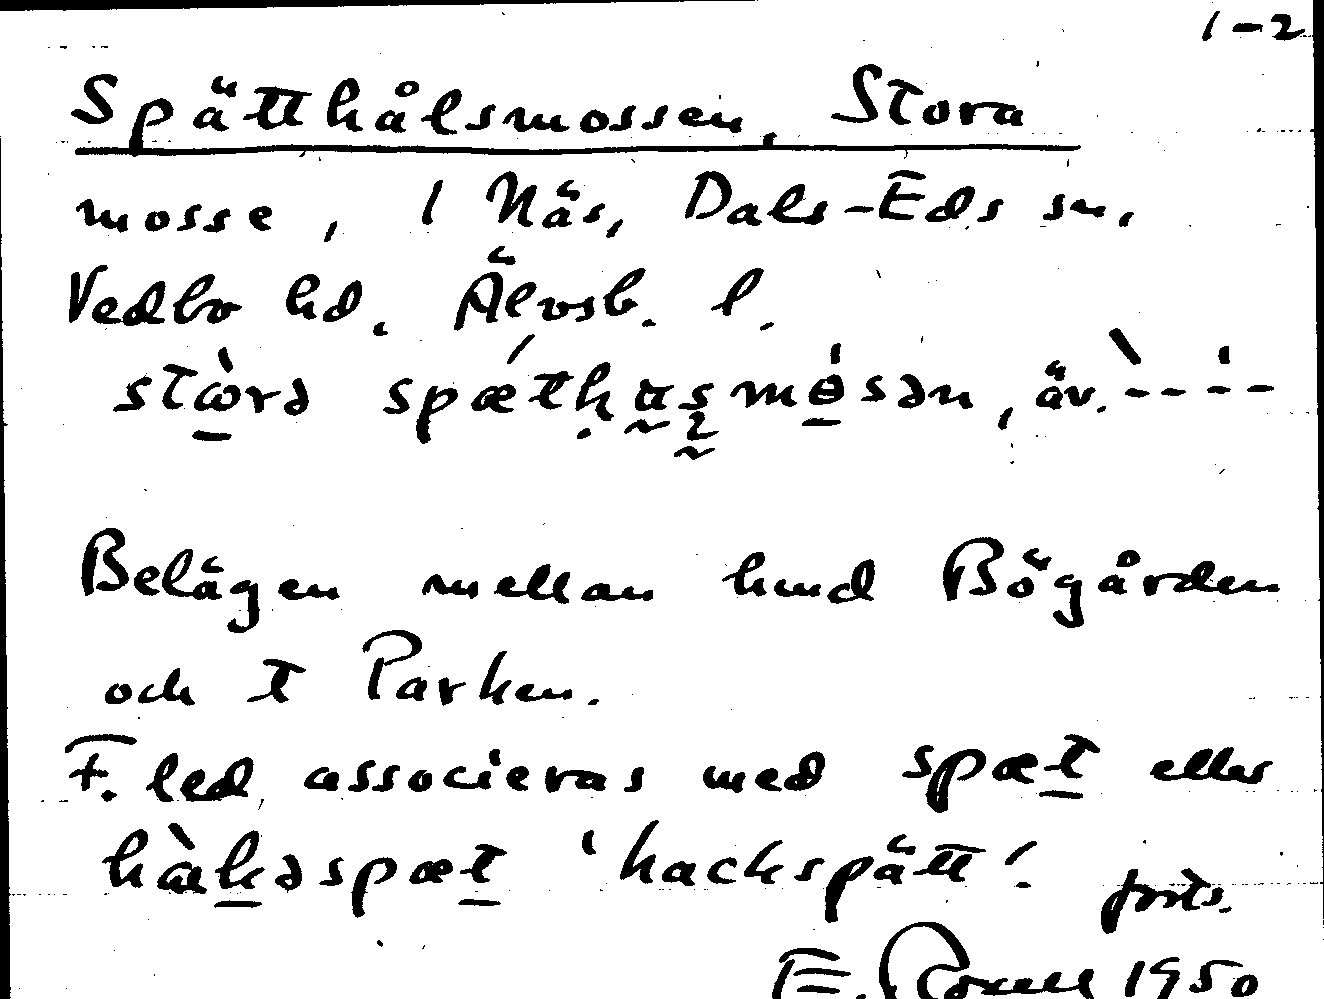 1-2
Spätthålsmossen, Stora
mosse, 1 Näs, Dals-Eds sn,
Vedbo hd. Älvsb. l.
äv.
Belägen mellan hmd Bögården
och t Parken.
F. led associeras med spæt eller
'hackspätt'. forts.
E. 1950